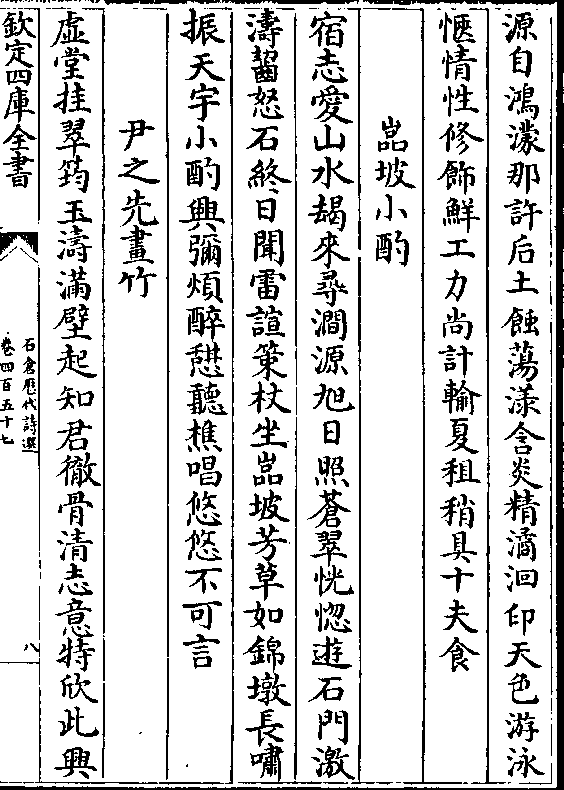 源自鴻濛那許后土蝕蕩漾含炎精潏洄印天色游泳
愜情性修飾鮮工力尚計輸夏租稍具十夫食
嵓坡小酌
宿志愛山水朅來尋澗源旭日照蒼翠恍惚遊石門激
濤齧怒石終日聞雷諠策杖坐嵓坡芳草如錦墩長嘯
振天宇小酌興彌煩醉憇聽樵唱悠悠不可言
尹之先畫竹
虛堂挂翠筠玉濤滿壁起知君徹骨清志意特欣此興
欽定四庫全書
石倉歷代詩選
卷四百五十七
八